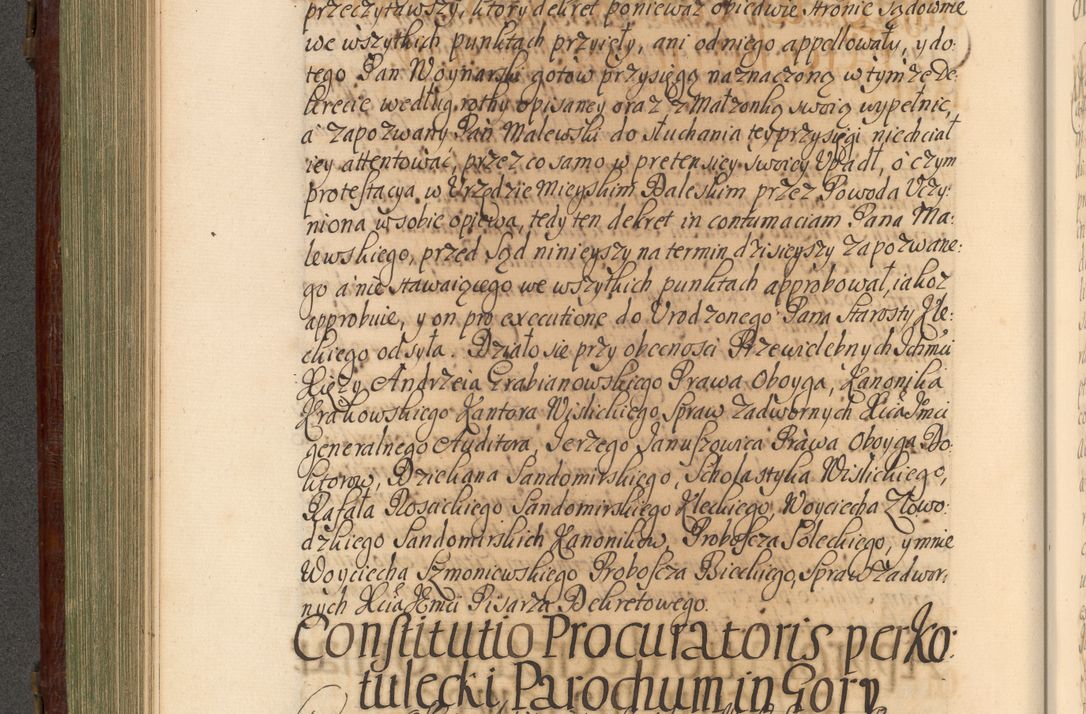 przeczytawszy, ktory dekret ponieważ obiedwie stronie Sądownie
we wszytkich punktach przyięły, ani od niego appellowały, y do
tego Pan Woynarski gotow przysięgę naznaczoną w tymże De-
krecie według rothy opisaney oraz z Małzonką swoią wypełnic,
a zapozwany Pan Malewski do słuchania tey przysięgi niechciał
iey attentować, przez co samo w pretensiey swoiey Upadł, o czym
protestacya w Urzędzie Mieyskim Daleskim przez Powoda Uczy-
niona w sobie opiewa, tedy ten dekret in contumaciam Pana Ma-
lewskiego, przed Sąd ninieyszy na termin dzisieyszy zapozwane-
go a nie stawaiącego we wszytkich punktach approbował, iakoz
approbuie, y on pro executione do Urodzonego Pana Starosty Kle-
ckiego odsyła. Działo sie przy obecnosci Przewielebnych Ichmci
Xięży Andrzeia Grabianowskiego Prawa Oboyga, Kanonika
Krakowskiego Kantora Wislickiego, Spraw Zadwornych Xcia Jmci
generalnego Auditora, Jerzego Januszowica Prawa Oboyga Do-
ktorow, Dziekana Sandomirskiego, Scholastyka Wislickiego,
Rafała Rosaickiego Sandomirskiego Kleckiego, Woyciecha Złowo-
dzkiego Sandomirskich Kanonikow, Proboscza Soleckiego, y mnie
Woyciecha Szmoniewskiego Proboscza Bieckiego, Spraw Zadwor-
nych Xcia Jmci Pisarza Dekretowego.
Constitutio Procuratoris per Ko-
tulecki Parochum in Gory